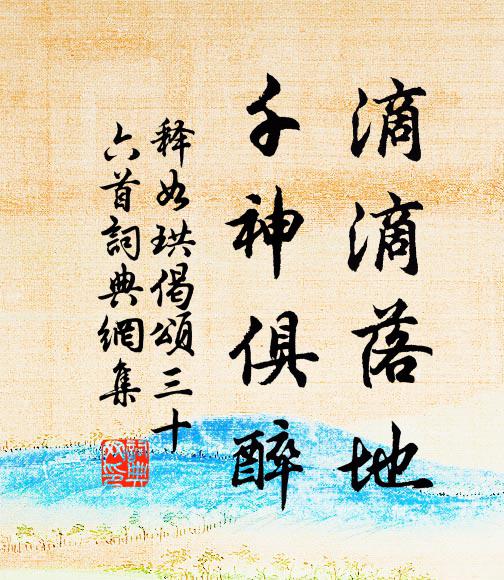 滴滴落地
千神俱醉
釋如珙偈頌三十
六首詞典網集